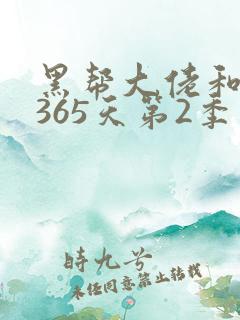 黑帮大佬和
365天第2季
時九兮
未经同意禁止转载